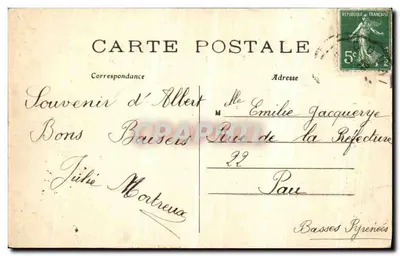 RÉPUBLIQUE FRANÇAISE
5c
CARTE POSTALE
Correspondance
Adresse
Souvenir d'Albert
Bons Baisers
Julie Mortreux
M lle Emilie Jacquerye
Rue de la Préfecture
22
Pau
Basses Pyrénées